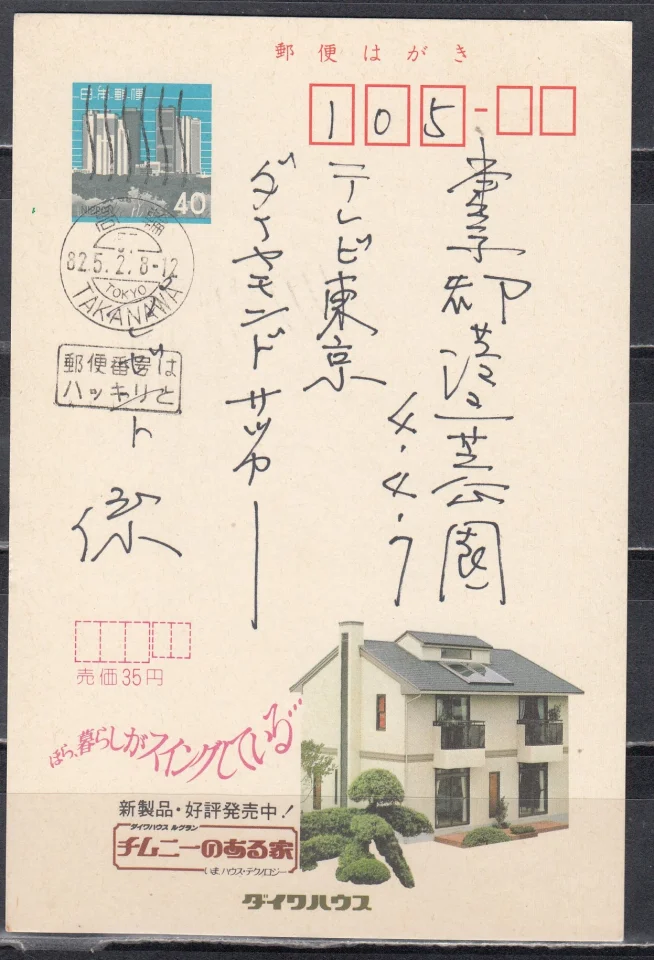 郵便はがき
日本郵便
NIPPON
40
高輪
82.5.2.8-12
TOKYO
TAKANAWA
郵便番号は
ハッキリと
105
東京都港区芝公園
4.4.7
テレビ東京
ダイヤモンドサッカー
係
売価35円
ほら、暮らしがスイングしている…
新製品・好評発売中！
ダイワハウス ルグラン
チムニーのある家
いま、ハウス・テクノロジー
ダイワハウス